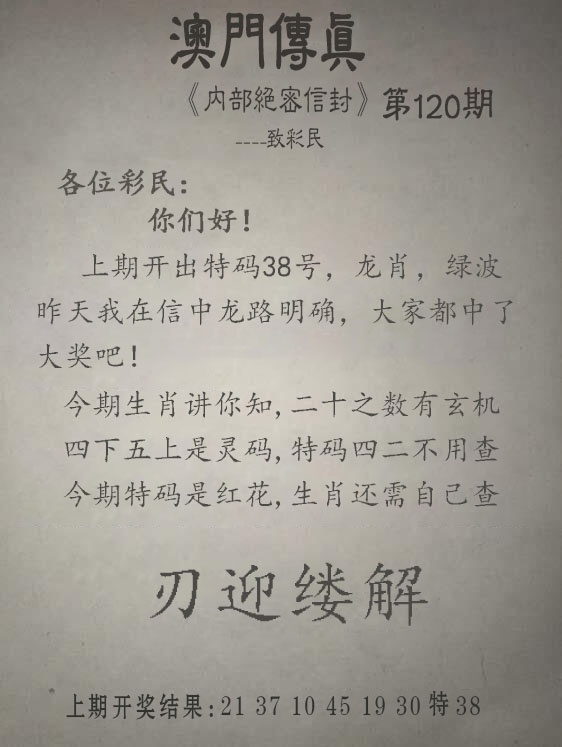 澳門傳眞
《内部絕密信封》第120期
----致彩民
各位彩民:
你们好!
上期开出特码38号，龙肖，绿波
昨天我在信中龙路明确，大家都中了
大奖吧!
今期生肖讲你知,二十之数有玄机
四下五上是灵码,特码四二不用查
今期特码是红花,生肖还需自己查
刃迎缕解
上期开奖结果:21 37 10 45 19 30 特 38